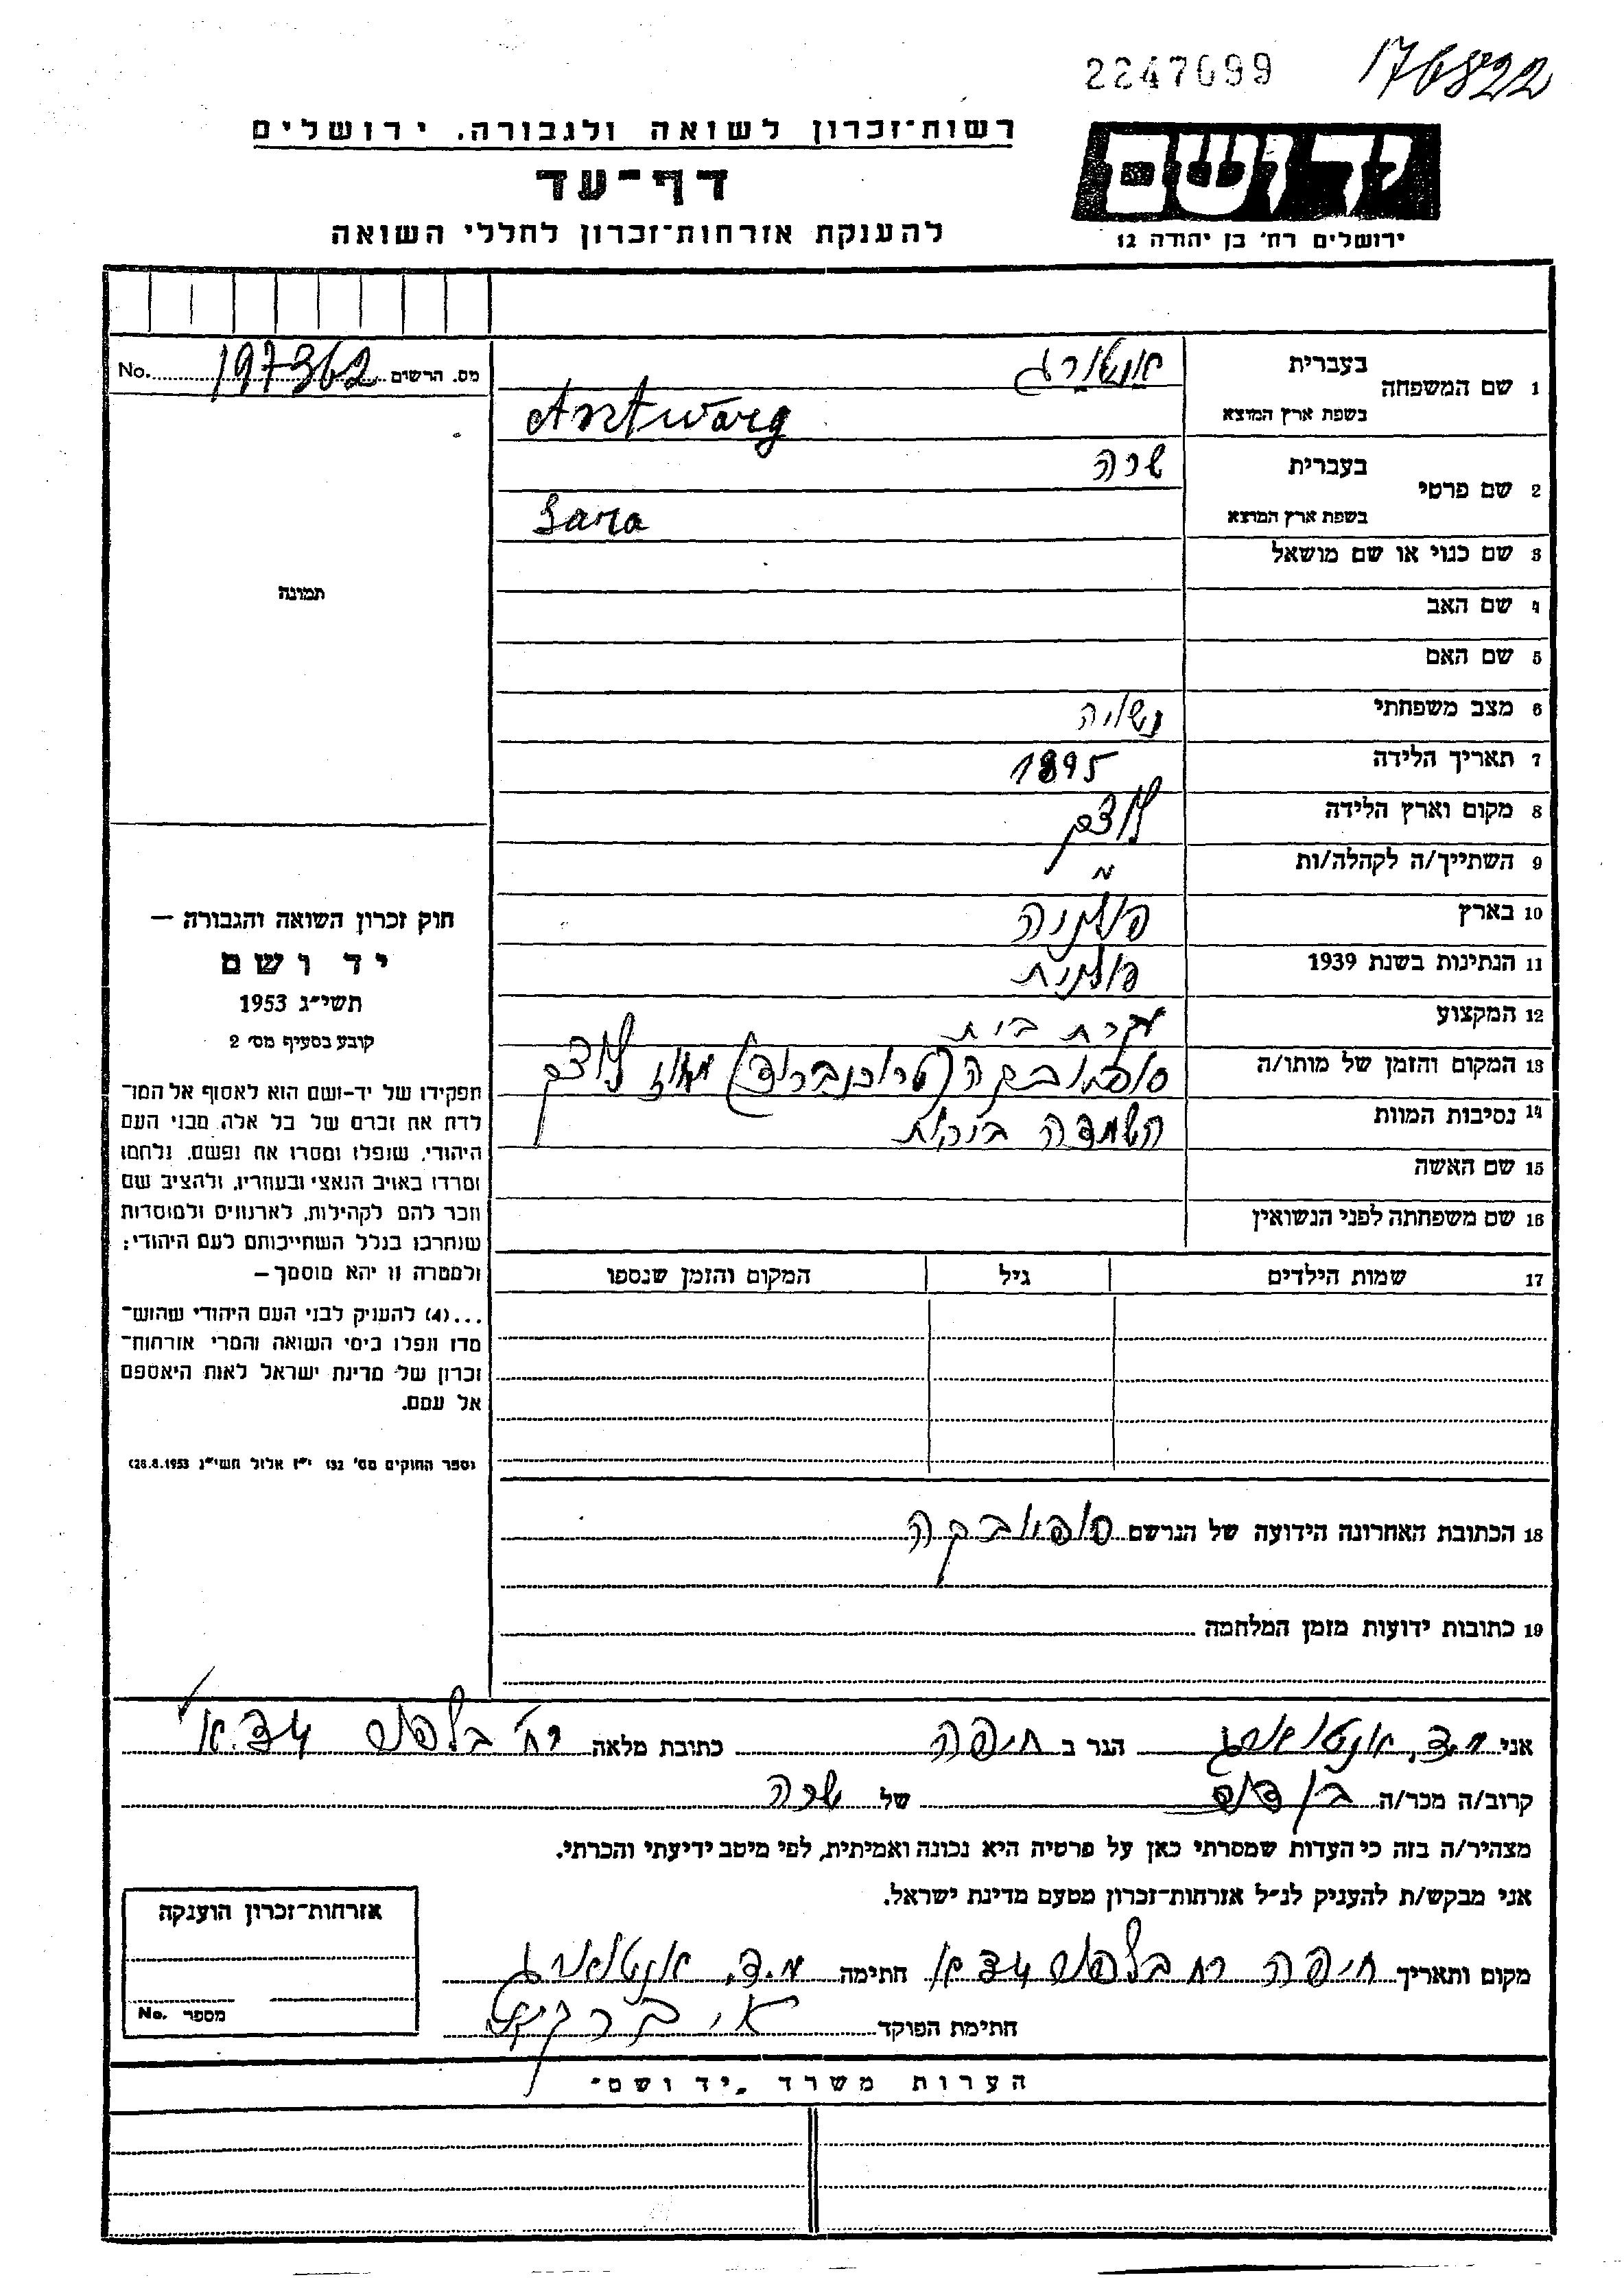 2247699 176822
רשות־זכרון לשואה ולגבורה. ירושלים
דף־עד
להענקת אזרחות־זכרון לחללי השואה
יד ושם
ירושלים רח' בן יהודה 12
מס. הרשום 197362 No.
1 שם המשפחה
בעברית
בשפת ארץ המוצא
Antwarg
2 שם פרטי
בעברית שרה
בשפת ארץ המוצא Sara
3 שם כנוי או שם מושאל
4 שם האב
5 שם האם
6 מצב משפחתי נשואה
7 תאריך הלידה 1895
8 מקום וארץ הלידה לוצק
9 השתייך/ה לקהלה/ות "
10 בארץ פולניה
11 הנתינות בשנת 1939 פולנית
12 המקצוע עקרת בית
13 המקום והזמן של מותו/ה סופיובקה (טרוכנברוד) מחוז לוצק
14 נסיבות המוות השמדה
15 שם האשה
16 שם משפחתה לפני הנשואין
17 שמות הילדים גיל המקום והזמן שנספו
18 הכתובת האחרונה הידועה של הנרשם סופיובקה
19 כתובות ידועות מזמן המלחמה
תמונה
חוק זכרון השואה והגבורה —
יד ושם
תשי״ג 1953
קובע בסעיף מס׳ 2
תפקידו של יד-ושם הוא לאסוף אל המו־
לדת את זכרם של כל אלה מבני העם
היהודי, שנפלו ומסרו את נפשם, נלחמו
ומרדו באויב הנאצי ובעוזריו, ולהציב שם
וזכר להם לקהילות, לארגונים ולמוסדות
שנחרבו בגלל השתייכותם לעם היהודי;
ולמטרה זו יהא מוסמך —
...(4) להעניק לבני העם היהודי שהוש־
מדו ונפלו בימי השואה והמרי אזרחות־
זכרון של מדינת ישראל לאות היאספם
אל עמם.
(ספר החוקים מס׳ 132 י״ז אלול תשי״ג 28.8.1953)
אני מ.ד. אנטווארג הגר ב חיפה כתובת מלאה רח׳ בלפור
קרוב/ה מכר/ה בן דוד של שרה
מצהיר/ה בזה כי העדות שמסרתי כאן על פרטיה היא נכונה ואמיתית, לפי מיטב ידיעתי והכרתי.
אני מבקש/ת להעניק לנ״ל אזרחות־זכרון מטעם מדינת ישראל.
מקום ותאריך חיפה רח בלפור חתימה מ.ד. אנטווארג
חתימת הפוקד
אזרחות־זכרון הוענקה
מספר No.
הערות משרד „יד ושם״